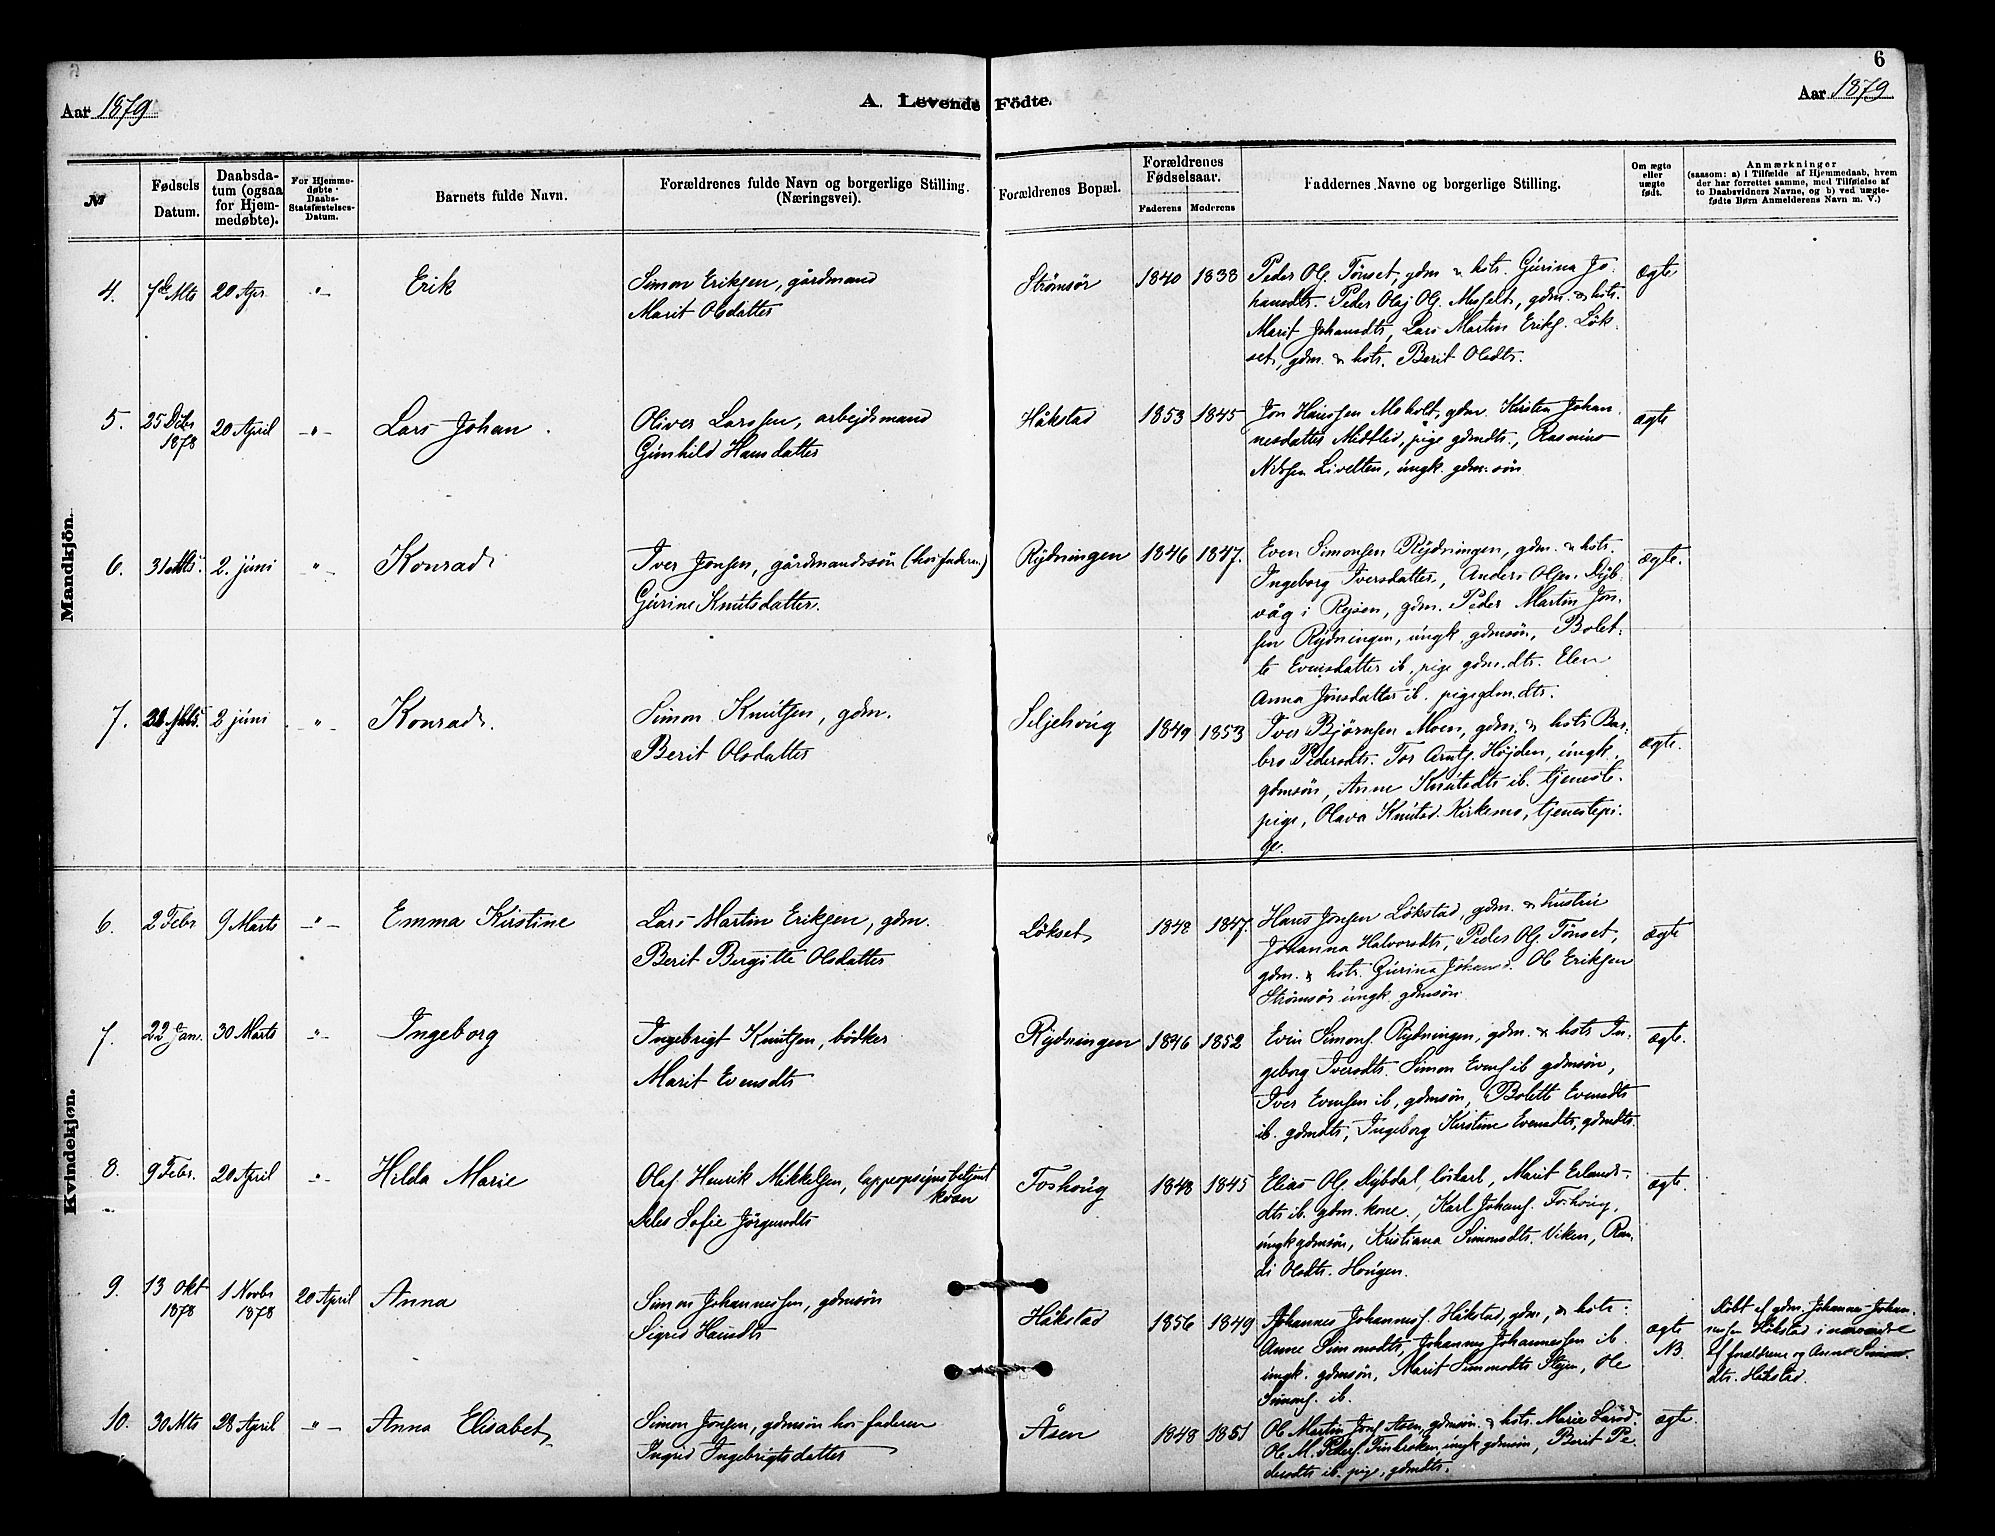 6
Aar 1879
A. Levende Födte.
Aar 1879
№
Fødsels Datum.
Daabsdatum (ogsaa for Hjemmedøbte).
For Hjemmedøbte Daabs-Statsfæstelses-Datum.
Barnets fulde Navn.
Forældrenes fulde Navn og borgerlige Stilling. (Næringsvei).
Forældrenes Bopæl.
Forældrenes Fødselsaar.
Faderens
Moderens
Faddernes Navne og borgerlige Stilling.
Om ægte eller uægte født.
Anmærkninger
(saasom: a) i Tilfælde af Hjemmedaab, hvem der har forrettet samme, med Tilføielse af to Daabsvidners Navne, og b) ved uægte-fødte Børn Anmelderens Navn m. V.)
Mandkjön.
4. 7de Mts 20 Apr. " Erik
Simon Eriksen, gårdmand
Marit Olsdatter
Strömsör 1840 1838
Peder Ols. Tönset, gdm. & hstr. Gurina Jo-
hansdtr. Peder Olaj Ols. Melselt, gdm. & hstr.
Marit Johansdtr, Lars Martin Eriks. Lök-
set, gdm. & hstr. Berit Olsdtr.
ægte
5. 25 Dcbr 1878 20 April " Lars Johan.
Oliver Larssen, arbejdsmand
Gunhild Hansdatter
Håkstad 1853 1845
Jon Hanssen Moholt, gdm. Kirsten Johan-
nesdatter Midtlid, pige gdmdtr., Rasmus
Nilssen Livelten, ungk. gdm.sön
ægte
6. 31 Mts. 2. juni " Konrad
Iver Jonsen, gårdmandssön (hos faderen)
Gurine Knutsdatter.
Rydningen 1846 1847.
Even Simonsen Rydningen, gdm. & hstr.
Ingeborg Iversdatter, Anders Olsen Dyb-
våg i Rejsen, gdm. Peder Martin Jon-
sen Rydningen, ungk. gdmsön, Bolet-
te Evensdatter ib. pige gdm.dtr. Elen
Anna Jonsdatter ib. pige gdm.dtr.
ægte.
7. 31 Mts. 2 juni " Konrad.
Simon Knutsen, gdm.
Berit Olsdatter
Seljehoug 1849 1853
Iver Björnsen Moen, gdm. & hstr Bar-
bro Pedersdtr. Tor Arnts. Höjden, ungk.
gdmsön, Anne Knutsdtr ib. tjeneste-
pige, Olava Knutsd. Kirkemo, tjenestepi-
ge.
ægte.
Kvindekjøn.
6. 2 Febr 9 Marts " Emma Kirstine
Lars Martin Eriksen, gdm.
Berit Bergitte Olsdatter
Lökset 1848 1847.
Hans Jonsen Lökstad, gdm. & hustru
Johanna Halvorsdtr, Peder Ols. Tönset,
gdm. & hstr. Gurina Johansd. Ole Eriksen
Strömsör ungk. gdmsön.
ægte
7. 22 Jan. 30 Marts " Ingeborg
Ingebrigt Knutsen, bödker
Marit Evensdtr
Rydningen 1846 1852
Even Simons. Rydningen, gdm. & hstr In-
geborg Iversdtr. Simon Evens. ib gdmsön,
Iver Evensen ib., gdmsön, Bolette Evensdtr
ib. gdmdtr, Ingeborg Kirstine Evensdtr, gdmdtr.
ægte.
8. 9 Febr. 20 April " Hilda Marie
Olaf Henrik Mikkelsen, lappopsynsbetjent
kvæn
Sofie Jörgensdtr
Foshoug 1848 1845
Elias Ols. Dybdal, löskarl, Marit Erlands-
dtr ib. gdm. kone, Karl Johans. Foshoug,
ungk gdmsön, Kristiana Simonsdtr. Viken, Ran-
di Olsdtr. Hougen.
ægte.
9. 13 Okt 1878 1 Novbr 1878 20 April Anna
Simon Johannessen, gdmsön
Sigrid Hansdtr
Håkstad 1856 1849
Johannes Johanness. Håkstad, gdm., & hstr.
Anne Simonsdtr, Johannes Johannessen ib.
ungk. gdmsön, Marit Simonsdtr Stejen, Ole
Simons. ib.
ægte
NB.
Döbt af gdm. Johannes Johan-
nessen Håkstad i nærværelse
af forældrene og Anne Simons-
dtr. Håkstad.
10. 30 Mts 28 April " Anna Elisabet
Simon Jonsen, gdmsön hos faderen
Ingrid Ingebrigtsdatter
Åsen 1848 1851
Ole Martin Jons. Åsen, gdmsön & hstr. Marie Larsd.
Ole M. Peders. Finkroken, ungk gdmsön, Berit Pe-
dersdtr. ib. pige, gdmdtr.
ægte.